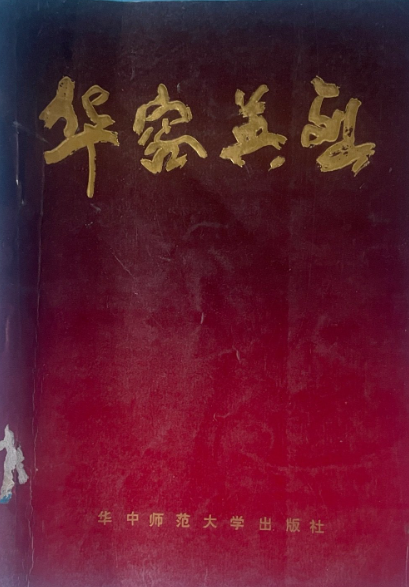 华容英烈
华中师范大学出版社